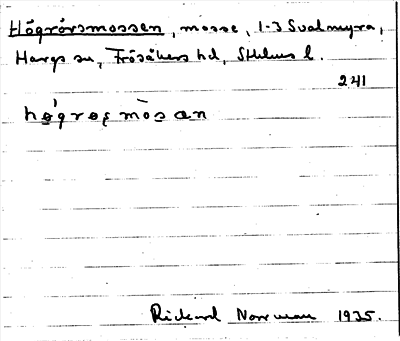 Högrörsmossen, mosse, 1-3 Svalmyra,
Hargs sn, Frösåkers hd, Sthlms l.
241
hø̀grøșmòsan
Rickard Norrman 1935.